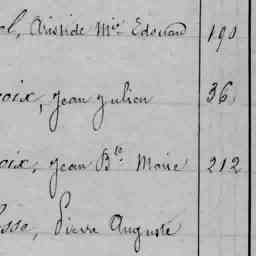 l, Aristide Mie Edouard 190
oix, Jean Julien 36
oix, Jean Bte Marie 212
sse, Pierre Auguste